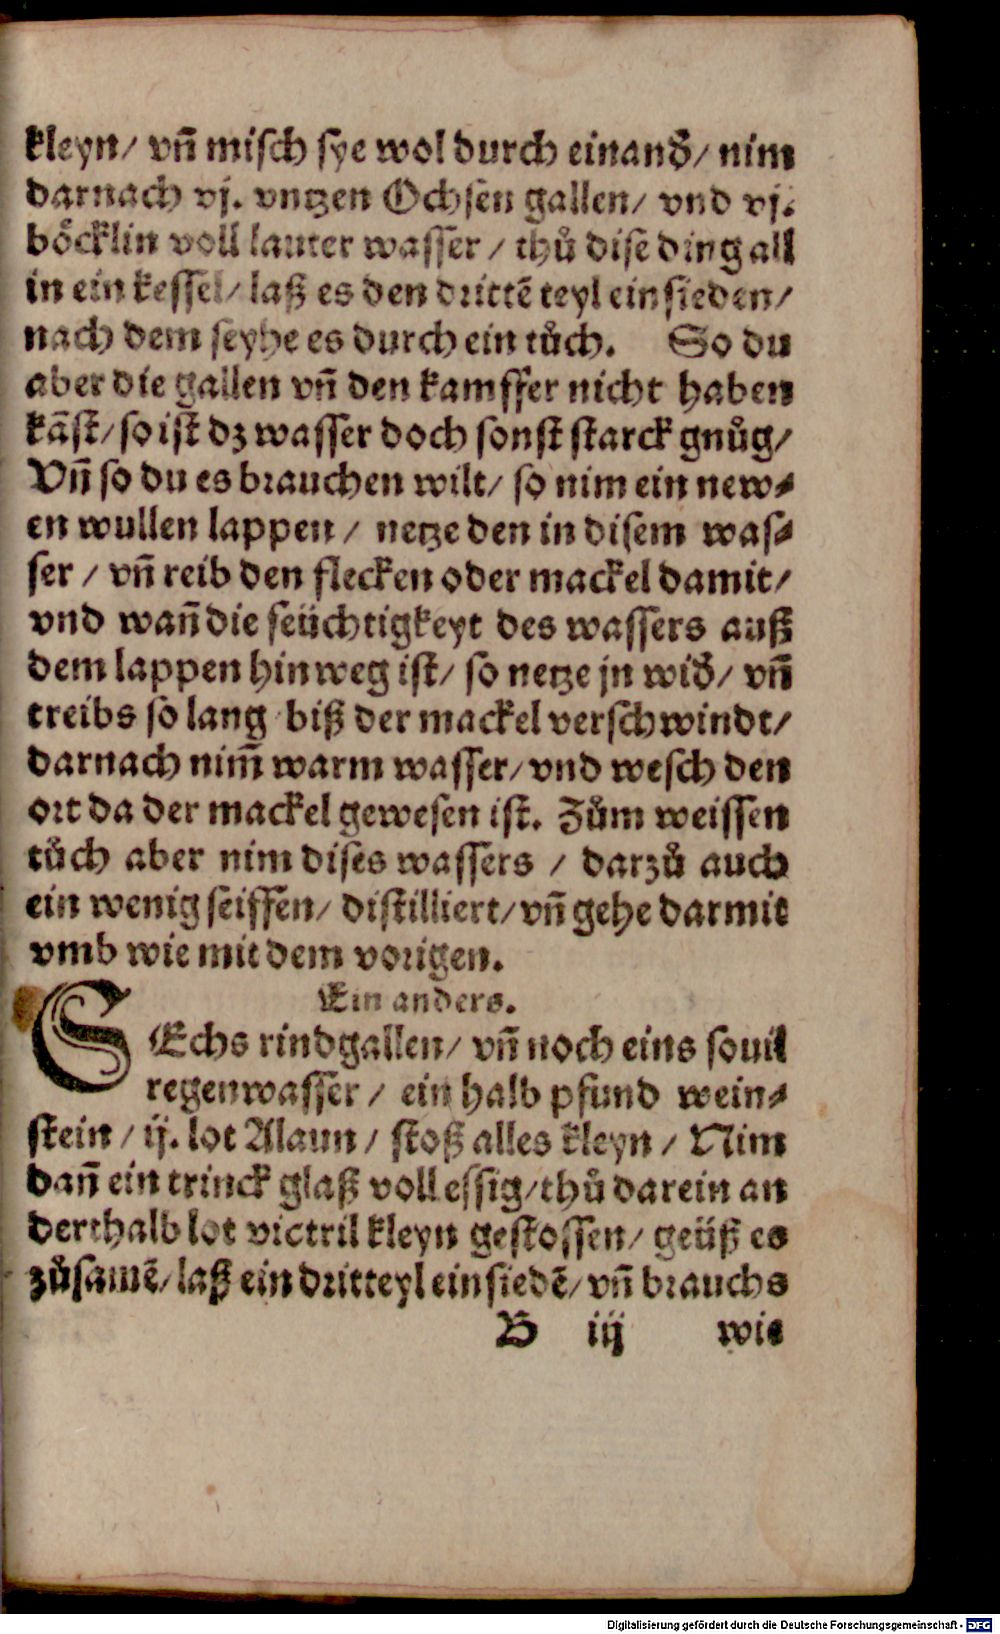 kleyn/ vñ misch sye wol durch einand̄/ nim
darnach vj. vntzen Ochsen gallen/ vnd vj.
böcklin voll lauter wasser / thů dise ding all
in ein kessel/ laß es den drittē teyl einsieden/
nach dem seyhe es durch ein tůch. So du
aber die gallen vñ den kamffer nicht haben
kāst/ so ist dz wasser doch sonst starck gnůg/
Vñ so du es brauchen wilt/ so nim ein new⸗
en wullen lappen / netze den in disem was⸗
ser / vñ reib den flecken oder mackel damit/
vnd wañ die feüchtigkeyt des wassers auß
dem lappen hinweg ist/ so netze jn wid̄/ vñ
treibs so lang biß der mackel verschwindt/
darnach nim̄ warm wasser/ vnd wesch den
ort da der mackel gewesen ist. Zům weissen
tůch aber nim dises wassers / darzů auch
ein wenig seiffen/ distilliert/ vñ gehe darmit
vmb wie mit dem vorigen.
Ein anders.
SEchs rindgallen/ vñ noch eins souil
regenwasser / ein halb pfund wein⸗
stein / ij. lot Alaun / stoß alles kleyn / Nim
dañ ein trinck glaß voll essig/ thů darein an
derthalb lot victril kleyn gestossen/ geüß es
zůsamē/ laß ein dritteyl einsiedē/ vñ brauchs
B iij wie
Digitalisierung gefördert durch die Deutsche Forschungsgemeinschaft - DFG